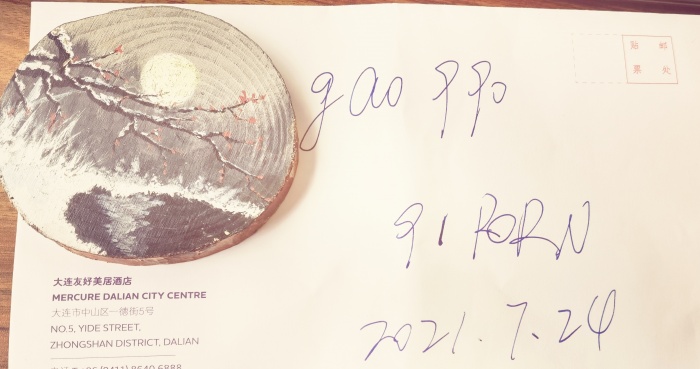 贴 邮
票 处
gao 990
91 PORN
2021.7.24
大连友好美居酒店
MERCURE DALIAN CITY CENTRE
大连市中山区一德街5号
NO.5, YIDE STREET,
ZHONGSHAN DISTRICT, DALIAN